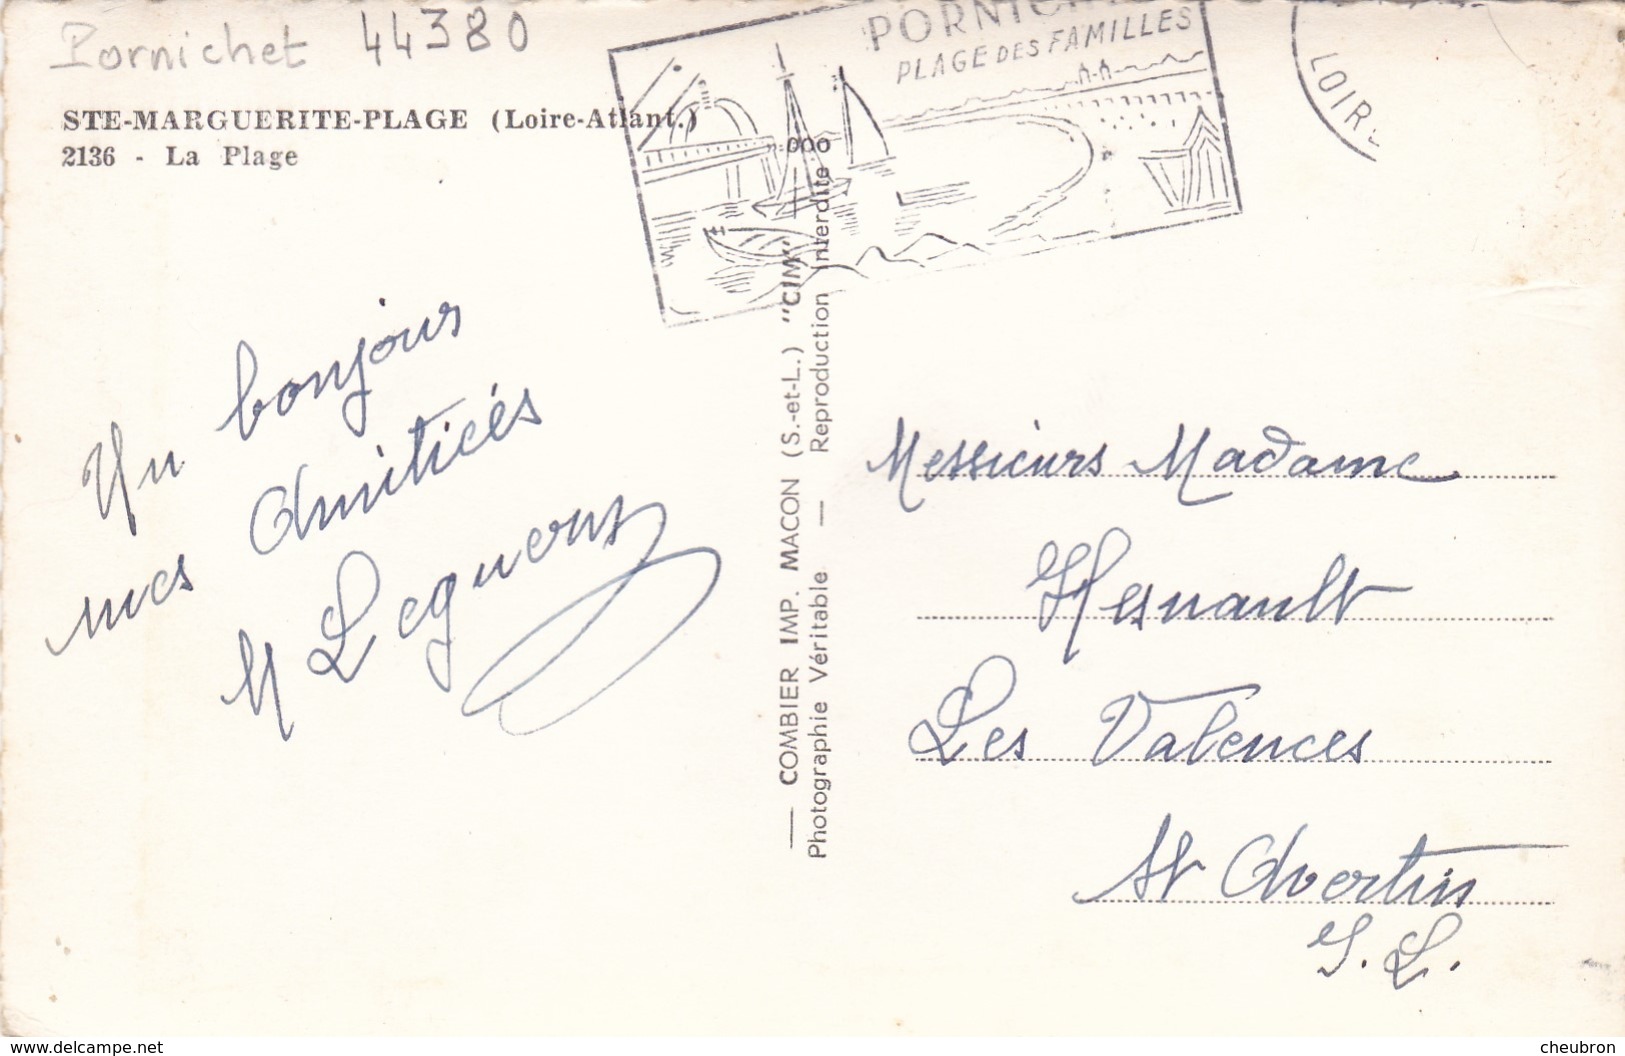 Pornichet 44380
STE-MARGUERITE-PLAGE (Loire-Atlant.)
2136 - La Plage
PORNICH
PLAGE DES FAMILLES
LOIRE
Un bonjour
mes Amitiés
M Leguern
— COMBIER IMP. MACON (S.-et-L.) "CIM"
Photographie Véritable — Reproduction interdite
Messieurs Madame
Hesnault
Les Valences
St Avertin
I. L.
www.delcampe.net
cheubron